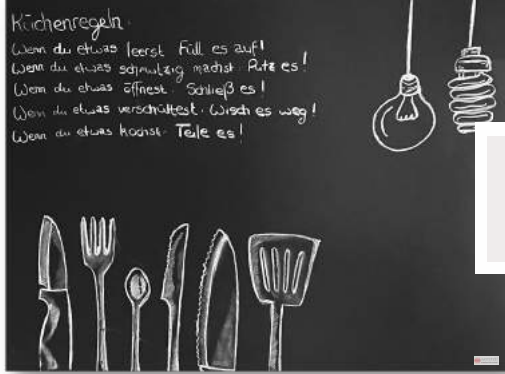 Küchenregeln.
Wenn du etwas leerst. Füll es auf!
Wenn du etwas schmutzig machst. Putz es!
Wenn du etwas öffnest. Schließ es!
Wenn du etwas verschüttest. Wisch es weg!
Wenn du etwas kochst. Teile es!